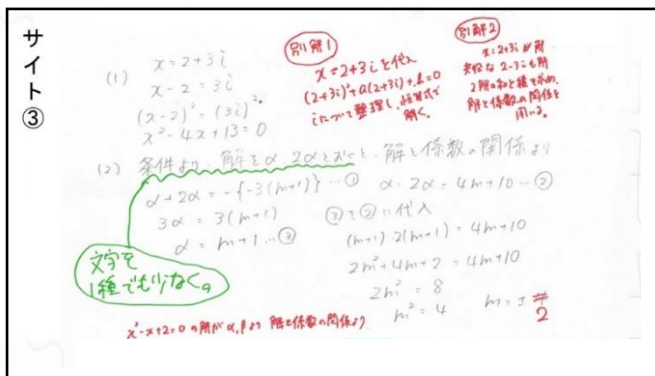 サイト③
(1) x=2+3i
x-2=3i
(x-2)²=(3i)²
x²-4x+13=0
別解1
x=2+3iを代入
(2+3i)²+a(2+3i)+b=0
iについて整理し、恒等式で
解く。
別解2
x=2+3iが解
共役な2-3iも解
2解の和と積を求め、
解と係数の関係を
用いる。
(2) 条件より、解をα、2αとおくと、解と係数の関係より
α+2α=-{-3(m+1)}…① α・2α=4m+10…②
3α=3(m+1) ③を②に代入
α=m+1…③ (m+1)・2(m+1)=4m+10
2m²+4m+2=4m+10
2m²=8
m²=4 m=±2
文字を
1種でも少なく。
x²-x+2=0の解がα,βより 解と係数の関係より